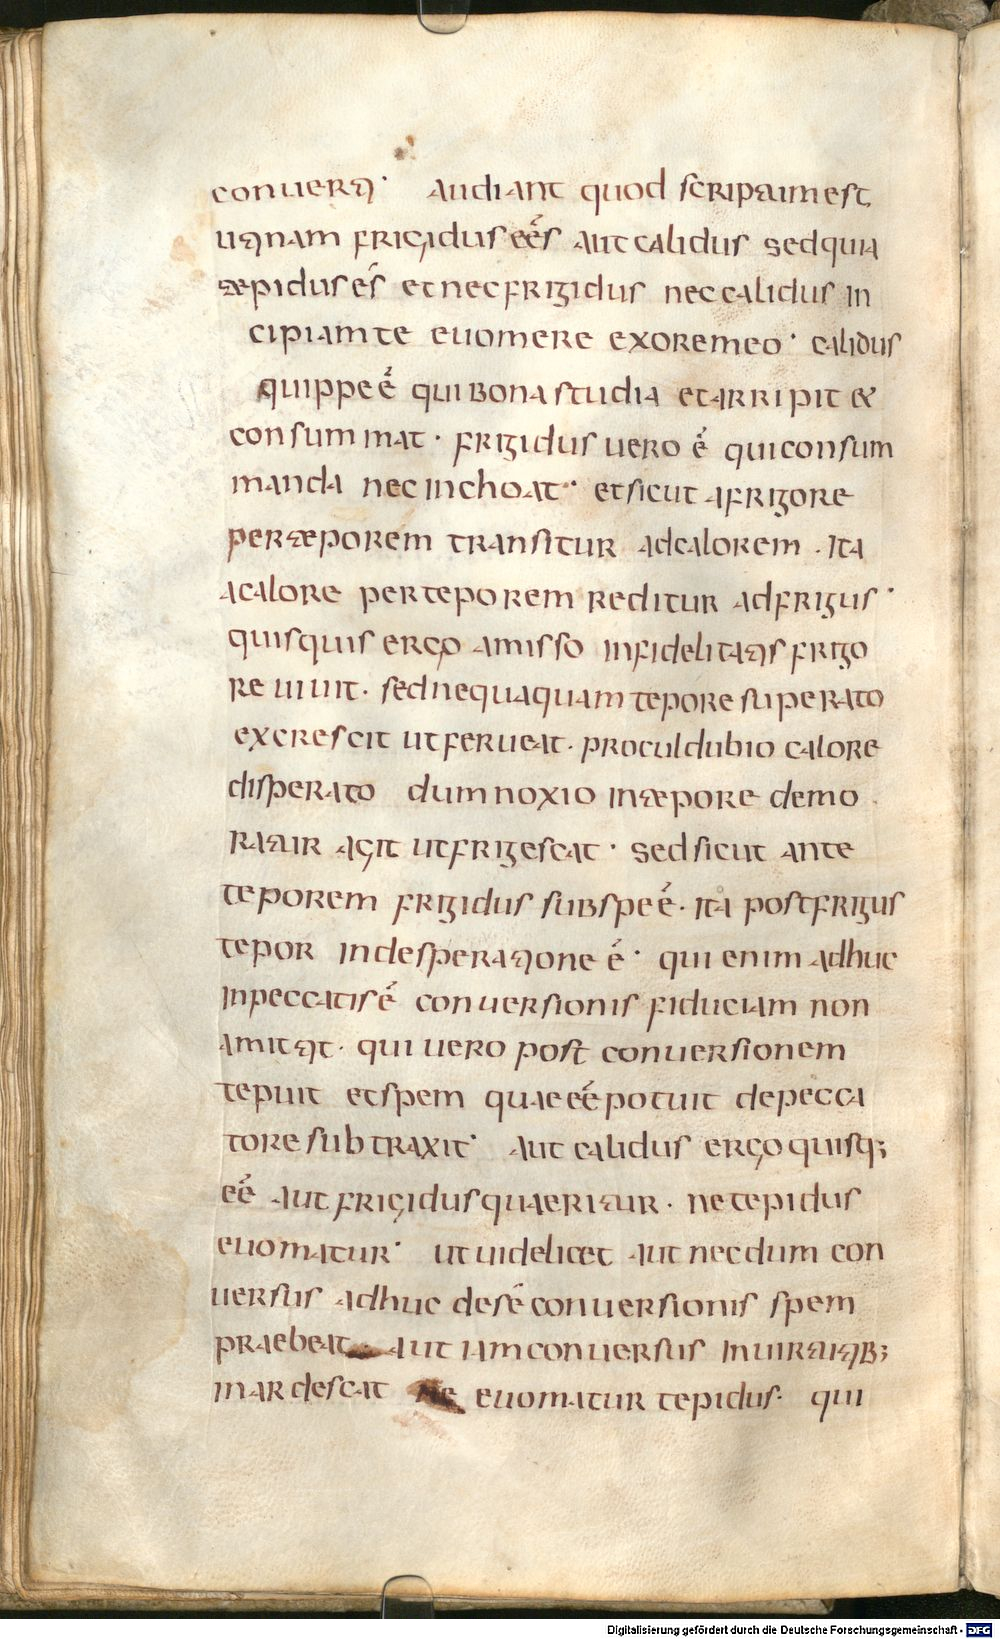 conuerti· Audiant quod scriptum est
utinam frigidus eēs aut calidus sed quia
tepidus ēs et nec frigidus nec calidus in
cipiam te euomere ex ore meo· calidus
quippe ē qui bona studia et arripit &
consummat· frigidus uero ē qui consum
manda nec inchoat· et sicut a frigore
per teporem transitur ad calorem· Ita
a calore per teporem reditur ad frigus·
quisquis ergo amisso infidelitatis frigo
re uiuit· sed nequaquam tepore superato
excrescit ut ferueat· procul dubio calore
disperato dum noxio in tepore demo
ratur agit ut frigescat· sed sicut ante
teporem frigidus sub spe ē· ita post frigus
tepor in desperatione ē· qui enim adhuc
in peccatis ē conuersionis fiduciam non
amittit· qui uero post conuersionem
tepuit et spem quae eē potuit de pecca
tore subtraxit· Aut calidus ergo quisq;
eē aut frigidus quaeritur· ne tepidus
euomatur· ut uidelicet aut necdum con
uersus adhuc de sē conuersionis spem
praebeat· aut iam conuersus in uirtutib;
inardescat ne euomatur tepidus· qui
Digitalisierung gefördert durch die Deutsche Forschungsgemeinschaft - DFG